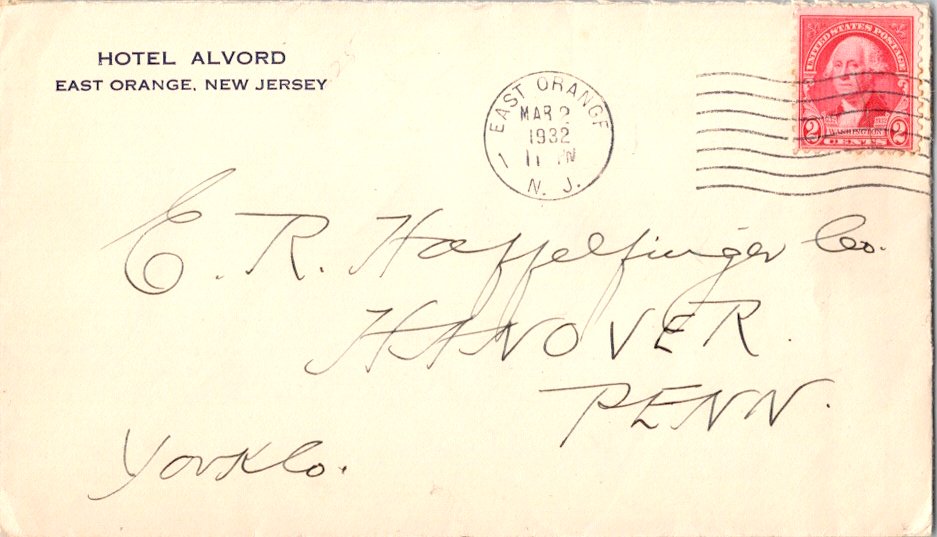 HOTEL ALVORD
EAST ORANGE, NEW JERSEY
EAST ORANGE
MAR 2
1932
N. J.
UNITED STATES POSTAGE
2 WASHINGTON 2
CENTS
E. R. Haffelfinger Co.
HANOVER.
PENN.
York Co.